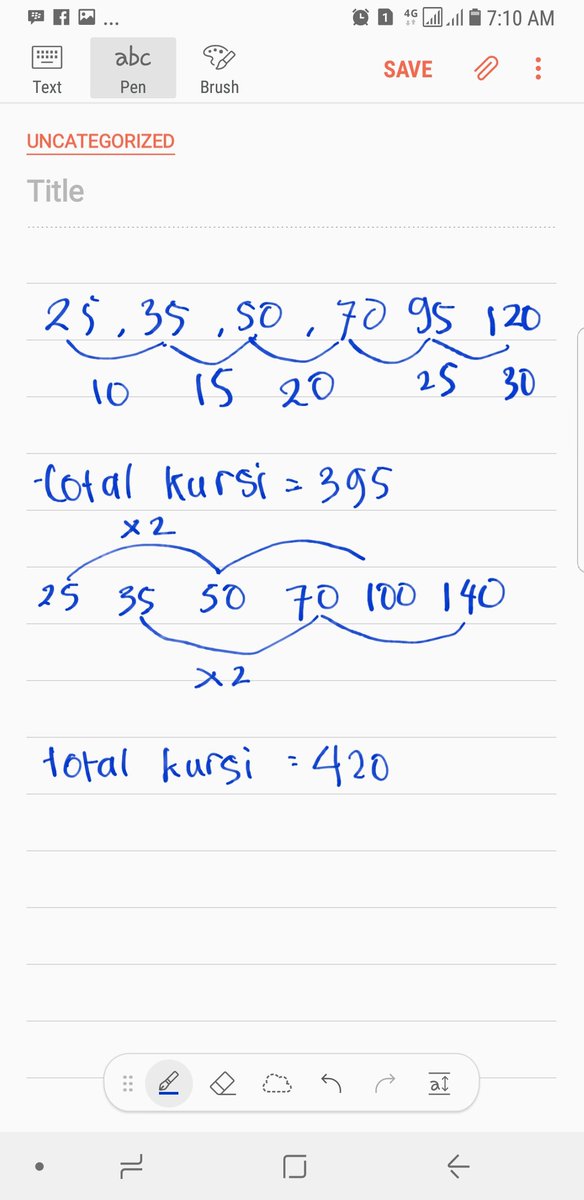 ... 1 4G 7:10 AM
Text abc Pen Brush SAVE
UNCATEGORIZED
Title
25, 35, 50, 70 95 120
10 15 20 25 30
total kursi = 395
x2
25 35 50 70 100 140
x2
total kursi = 420